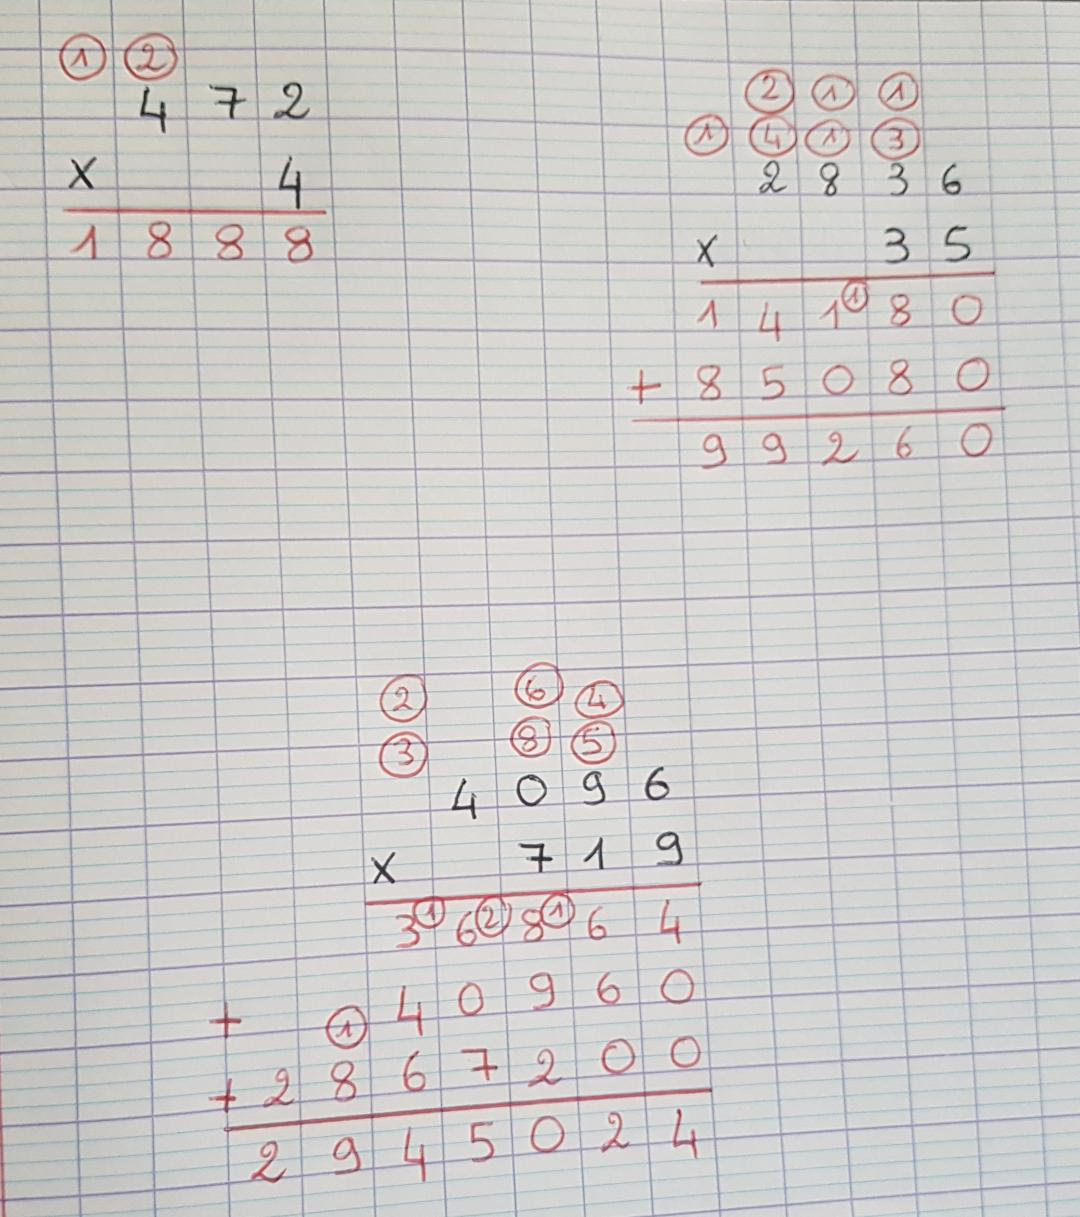 ① ②
4 7 2
x 4
1 8 8 8
② ① ①
① ④ ① ③
2 8 3 6
x 3 5
1 4 1① 8 0
+ 8 5 0 8 0
9 9 2 6 0
② ⑥ ④
③ ⑧ ⑤
4 0 9 6
x 7 1 9
3① 6② 8① 6 4
+ ① 4 0 9 6 0
+ 2 8 6 7 2 0 0
2 9 4 5 0 2 4